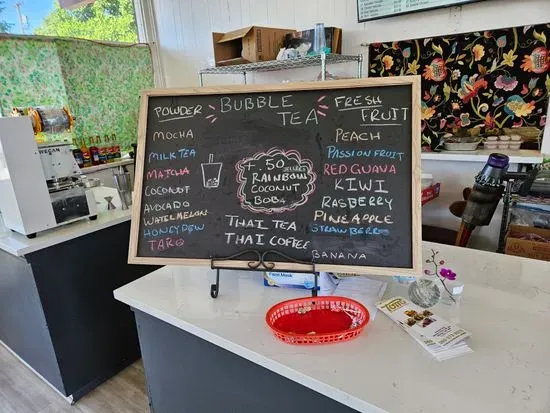 POWDER
MOCHA
MILK TEA
MATCHA
COCONUT
AVOCADO
WATERMELON
HONEYDEW
TARO
BUBBLE
TEA
+ 50
JELLIES
RAINBOW
COCONUT
BOBA
THAI TEA
THAI COFFEE
FRESH
FRUIT
PEACH
PASSION FRUIT
RED GUAVA
KIWI
RASBERRY
PINEAPPLE
STRAWBERRY
BANANA
VEGAN
Face Mask